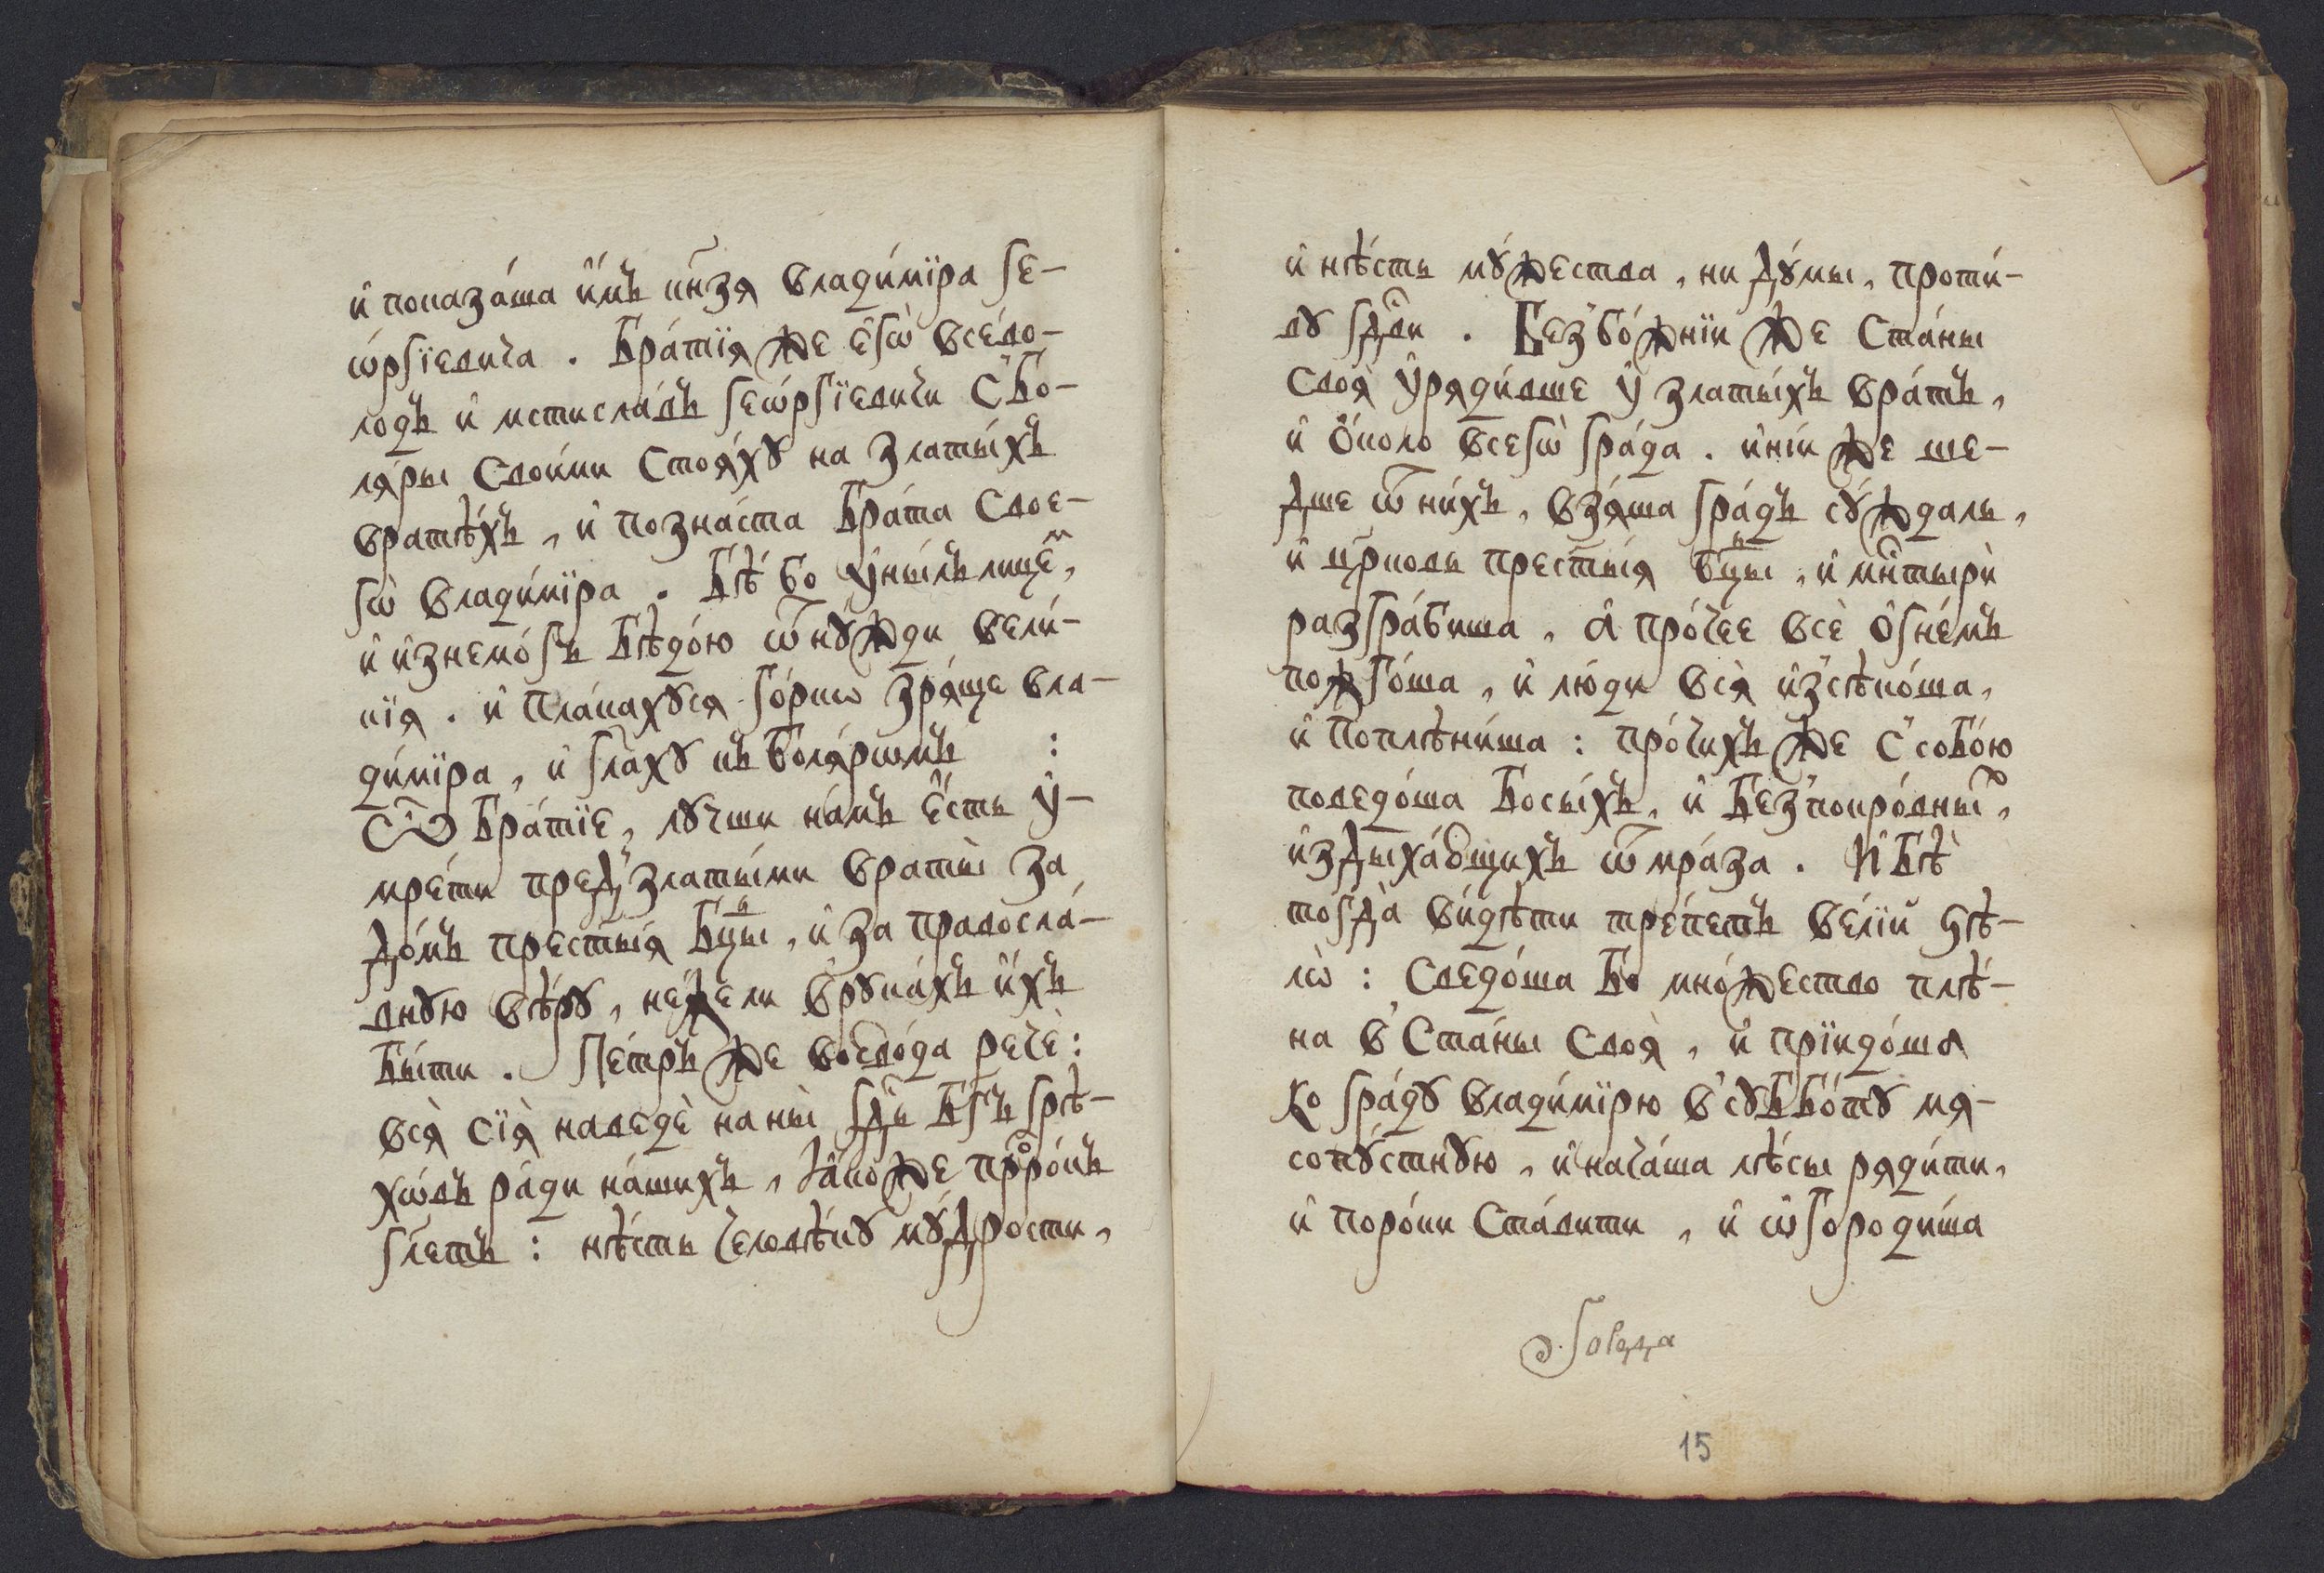 и҆ показа́ша и҆́мъ кн҃зя влади́мїра ге-
ѡ́ргїевича . Бра́тїя же є҆гѡ̀ все́во-
лодъ и҆ мстисла́въ геѡ́ргїевичи с̾бо-
ля́ры свои́ми стоя́хꙋ на златы́хъ
вратѣ́хъ , и҆ позна́ста бра́та свое-
гѡ̀ влади́мїра . Бѣ́ бо ᲂу҆ны́лъ лице́ᵐ ,
и҆ и҆знемо́гъ бѣдо́ю ѿ нꙋ́жди вели́-
кїя . и҆ пла́кахꙋся го́рькѡ зря́ще вла-
ди́мїра , и҆ гл҃ахꙋ къ боля́рѡмъ :
Ѽ бра́тїе , лꙋ́чши на́мъ є҆́сть ᲂу҆-
мре́ти пред̾ златы́ми враты̀ за
до́мъ прест҃ы́я бц҃ы , и҆ за правосла́-
внꙋю вѣ́рꙋ , не́жели в̾рꙋка́хъ и҆́хъ
бы́ти . Пе́тръ же воево́да речѐ :
вся̀ сїя̀ наведѐ на ны̀ гд҃ь бг҃ъ грѣ-
хѡ́въ ра́ди на́шихъ , ꙗ҆́коже прⷪ҇ро́къ
гл҃етъ : нѣ́сть человѣ́кꙋ мꙋ́дрости ,
и҆ нѣ́сть мꙋ́жества , ни дꙋ́мы , проти́-
вꙋ гд҃ви . Без̾бо́жнїи же ста́ны
своя̀ ᲂу҆ряди́вше ᲂу҆ златы́хъ вра́тъ ,
и҆ ѻ҆́коло всегѡ̀ гра́да . и҆ні́и же ше́-
дше ѿ ни́хъ , взя́ша гра́дъ сꙋ́ждаль ,
и҆ цр҃ковь прест҃ы́я бц҃ы , и҆ мн҃тырѝ
разгра́биша , а҆ про́чее всѐ ѻ҆гне́мъ
пожго́ша , и҆ лю́ди вся̀ и҆з̾сѣко́ша ,
и҆ поплѣни́ша : про́чихъ же с̾ собо́ю
поведо́ша босы́хъ , и҆ без̾покро́вныⷯ ,
и҆здыха́ющихъ ѿ мра́за . И҆ бѣ̀
тогда̀ ви́дѣти тре́петъ ве́лїй ѕѣ-
лѡ̀ : сведо́ша бо мно́жество плѣ́-
на в̾ ста́ны своя̀ , и҆ прїидо́ша
ко гра́дꙋ влади́мїрю в̾ сꙋббо́тꙋ мя-
сопꙋ́стнꙋю , и҆ нача́ша лѣ́сы ряди́ти ,
и҆ поро́ки ста́вити , и҆ ѡ҆городи́ша
15